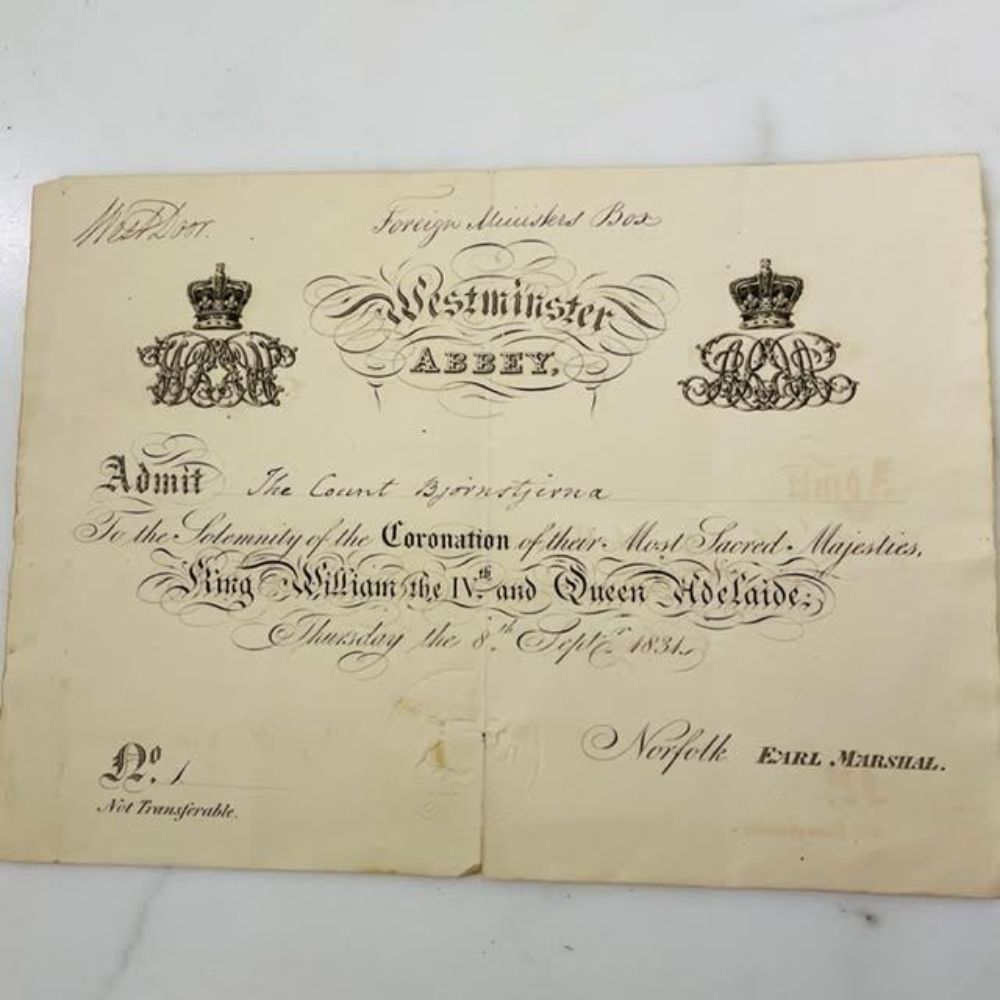 West Door.
Foreign Ministers Box
Westminster
ABBEY,
Admit The Count Bjornstjerna
To the Solemnity of the Coronation of their Most Sacred Majesties,
King William the IVth and Queen Adelaide;
Thursday the 8th Septr 1831.
No. 1
Not Transferable.
Norfolk EARL MARSHAL.